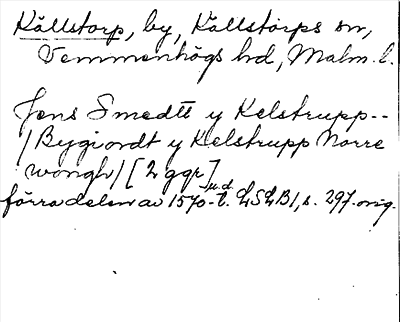 Källstorp, by, Källstorps sn,
Vemmenhögs hd, Malm. l.
Jens Smedtt y Kelstrupp--
/Bygiordt y Kelstrupp Norre
wongh/ [2 ggr]
förra delen av 1570-t. u.d. LSLB1, s. 297. orig.